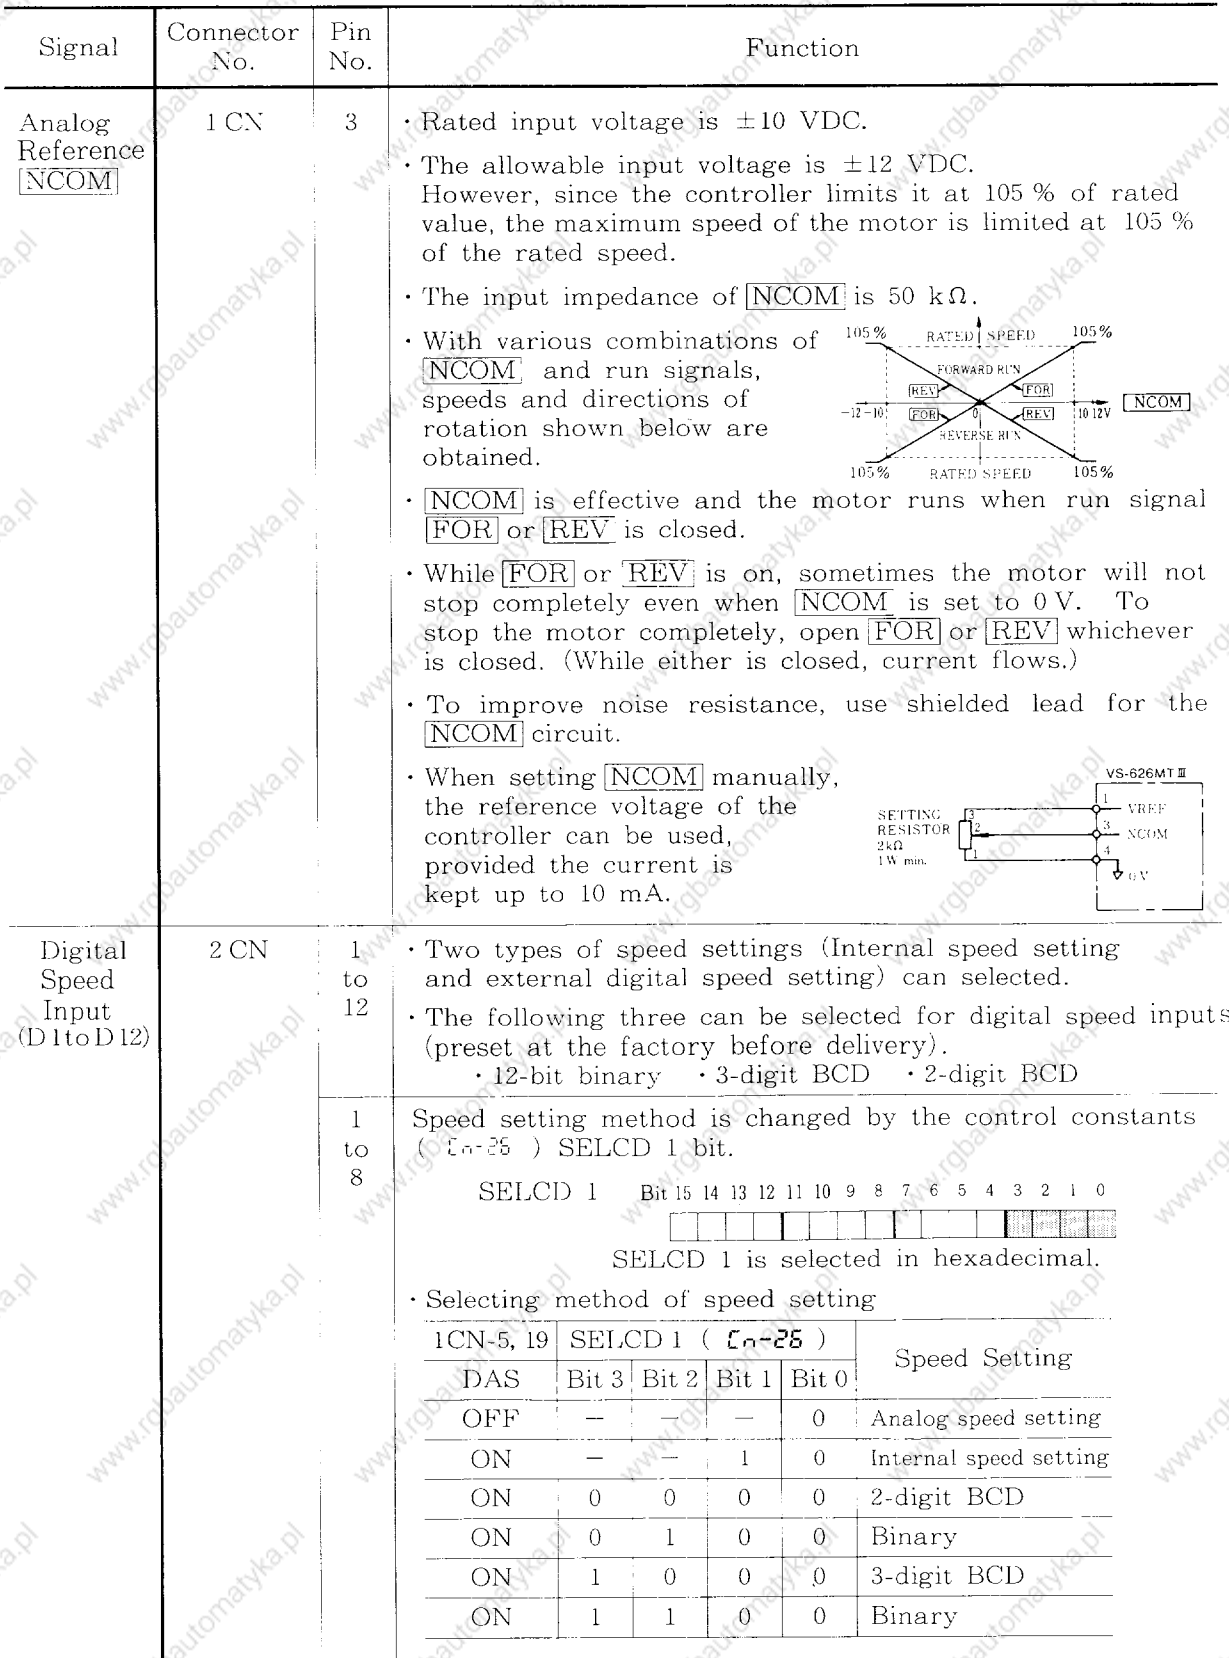 Signal Connector No. Pin No. Function
Analog Reference NCOM 1 CN 3
· Rated input voltage is ±10 VDC.
· The allowable input voltage is ±12 VDC.
However, since the controller limits it at 105 % of rated
value, the maximum speed of the motor is limited at 105 %
of the rated speed.
· The input impedance of NCOM is 50 kΩ.
· With various combinations of
NCOM and run signals,
speeds and directions of
rotation shown below are
obtained.
105% RATED SPEED 105%
FORWARD RUN
REV FOR
-12 -10 0 10 12V NCOM
FOR REV
REVERSE RUN
105% RATED SPEED 105%
· NCOM is effective and the motor runs when run signal
FOR or REV is closed.
· While FOR or REV is on, sometimes the motor will not
stop completely even when NCOM is set to 0 V. To
stop the motor completely, open FOR or REV whichever
is closed. (While either is closed, current flows.)
· To improve noise resistance, use shielded lead for the
NCOM circuit.
· When setting NCOM manually,
the reference voltage of the
controller can be used,
provided the current is
kept up to 10 mA.
VS-626MTⅢ
SETTING
RESISTOR
2kΩ
1 W min.
3 1 VREF
2 3 NCOM
1 4 0 V
Digital
Speed
Input
(D1 to D12)
2 CN
1
to
12
· Two types of speed settings (Internal speed setting
and external digital speed setting) can selected.
· The following three can be selected for digital speed inputs
(preset at the factory before delivery).
· 12-bit binary · 3-digit BCD · 2-digit BCD
1
to
8
Speed setting method is changed by the control constants
( Cn-26 ) SELCD 1 bit.
SELCD 1 Bit 15 14 13 12 11 10 9 8 7 6 5 4 3 2 1 0
SELCD 1 is selected in hexadecimal.
· Selecting method of speed setting
1CN-5, 19 SELCD 1 ( Cn-26 ) Speed Setting
DAS Bit 3 Bit 2 Bit 1 Bit 0
OFF — — — 0 Analog speed setting
ON — — 1 0 Internal speed setting
ON 0 0 0 0 2-digit BCD
ON 0 1 0 0 Binary
ON 1 0 0 0 3-digit BCD
ON 1 1 0 0 Binary
www.rgbautomatyka.pl